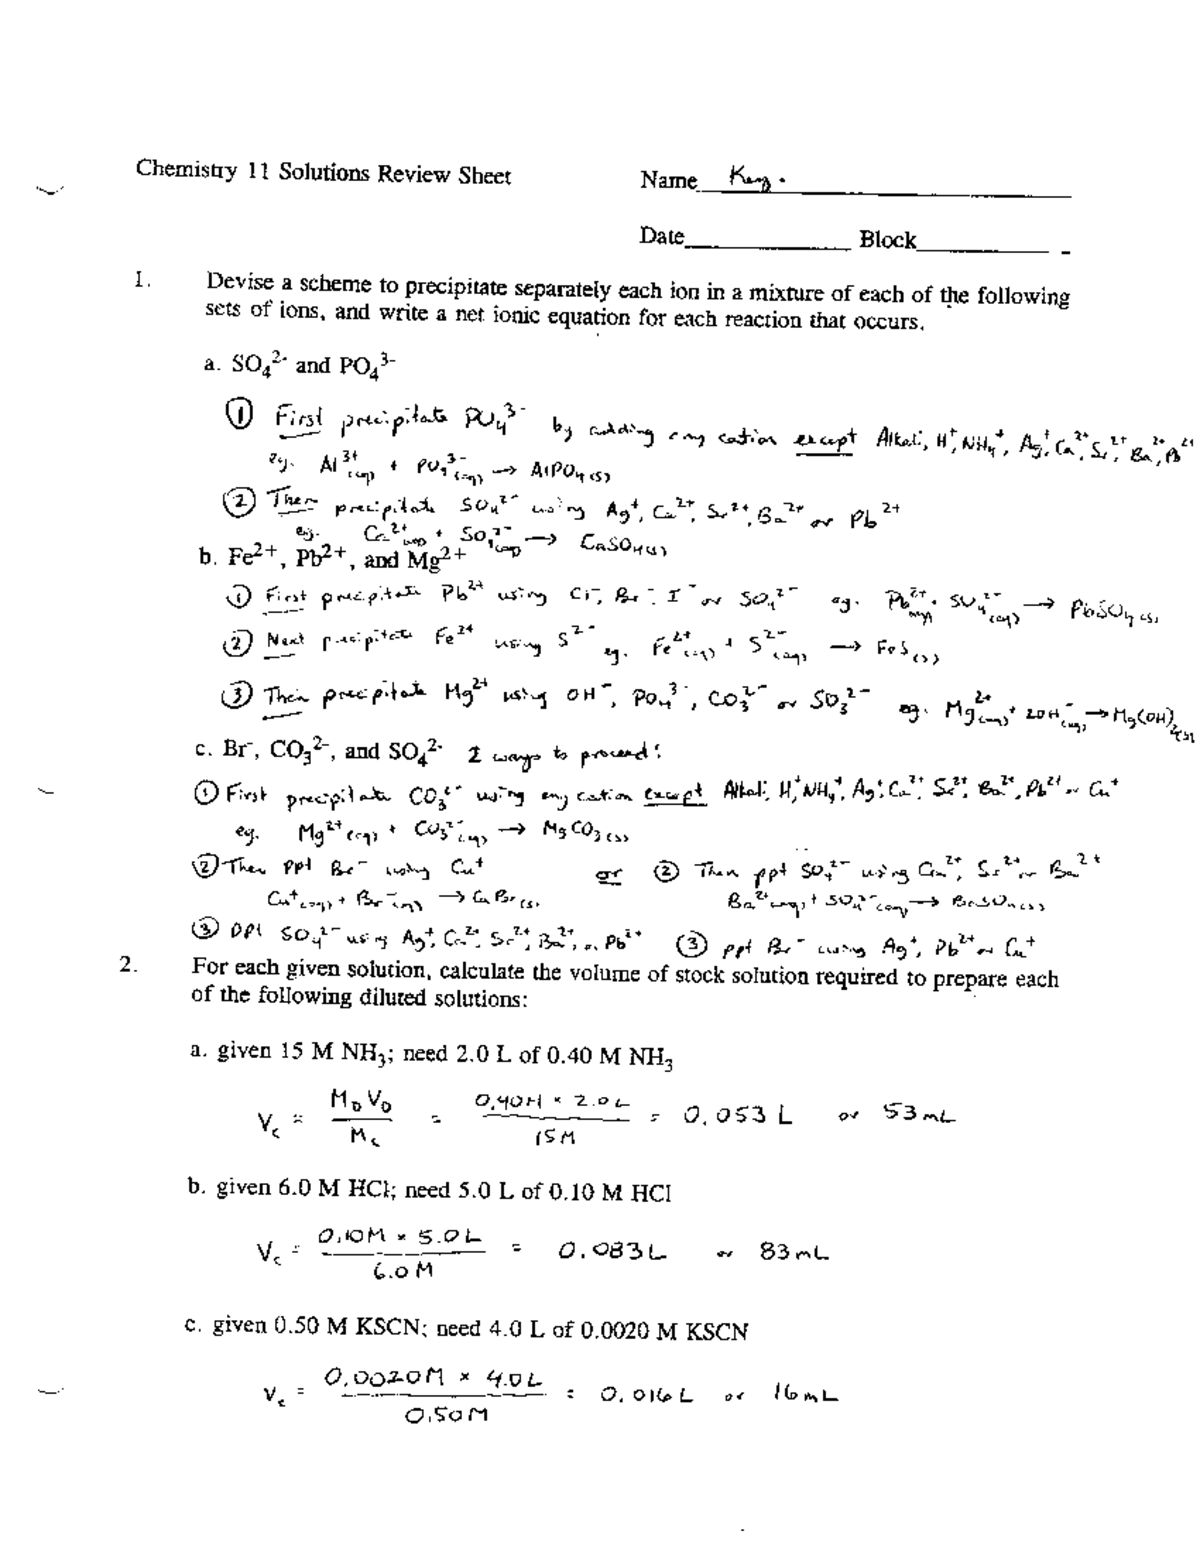 Chemistry 11 Solutions Review Sheet
Name Key.
Date Block
1. Devise a scheme to precipitate separately each ion in a mixture of each of the following
sets of ions, and write a net ionic equation for each reaction that occurs.
a. SO₄²⁻ and PO₄³⁻
① First precipitate PO₄³⁻ by adding any cation except Alkali, H⁺, NH₄⁺, Ag⁺, Ca²⁺, Sr²⁺, Ba²⁺, Pb²⁺
eg. Al³⁺(aq) + PO₄³⁻(aq) → AlPO₄(s)
② Then precipitate SO₄²⁻ using Ag⁺, Ca²⁺, Sr²⁺, Ba²⁺ or Pb²⁺
eg. Ca²⁺(aq) + SO₄²⁻(aq) → CaSO₄(s)
b. Fe²⁺, Pb²⁺, and Mg²⁺
① First precipitate Pb²⁺ using Cl⁻, Br⁻, I⁻ or SO₄²⁻ eg. Pb²⁺(aq) + SO₄²⁻(aq) → PbSO₄(s)
② Next precipitate Fe²⁺ using S²⁻ eg. Fe²⁺(aq) + S²⁻(aq) → FeS(s)
③ Then precipitate Mg²⁺ using OH⁻, PO₄³⁻, CO₃²⁻ or SO₃²⁻ eg. Mg²⁺(aq) + 2OH⁻(aq) → Mg(OH)₂(s)
c. Br⁻, CO₃²⁻, and SO₄²⁻ 2 ways to proceed:
① First precipitate CO₃²⁻ using any cation except Alkali, H⁺, NH₄⁺, Ag⁺, Ca²⁺, Sr²⁺, Ba²⁺, Pb²⁺ or Cu⁺
eg. Mg²⁺(aq) + CO₃²⁻(aq) → MgCO₃(s)
② Then ppt Br⁻ using Cu⁺ or ② Then ppt SO₄²⁻ using Ca²⁺, Sr²⁺ or Ba²⁺
Cu⁺(aq) + Br⁻(aq) → CuBr(s) Ba²⁺(aq) + SO₄²⁻(aq) → BaSO₄(s)
③ ppt SO₄²⁻ using Ag⁺, Ca²⁺, Sr²⁺, Ba²⁺, or Pb²⁺ ③ ppt Br⁻ using Ag⁺, Pb²⁺ or Cu⁺
2. For each given solution, calculate the volume of stock solution required to prepare each
of the following diluted solutions:
a. given 15 M NH₃; need 2.0 L of 0.40 M NH₃
V_c = M_D V_D / M_c = 0.40M × 2.0L / 15M = 0.053 L or 53 mL
b. given 6.0 M HCl; need 5.0 L of 0.10 M HCl
V_c = 0.10M × 5.0L / 6.0M = 0.083L or 83mL
c. given 0.50 M KSCN; need 4.0 L of 0.0020 M KSCN
V_c = 0.0020M × 4.0L / 0.50M = 0.016L or 16mL